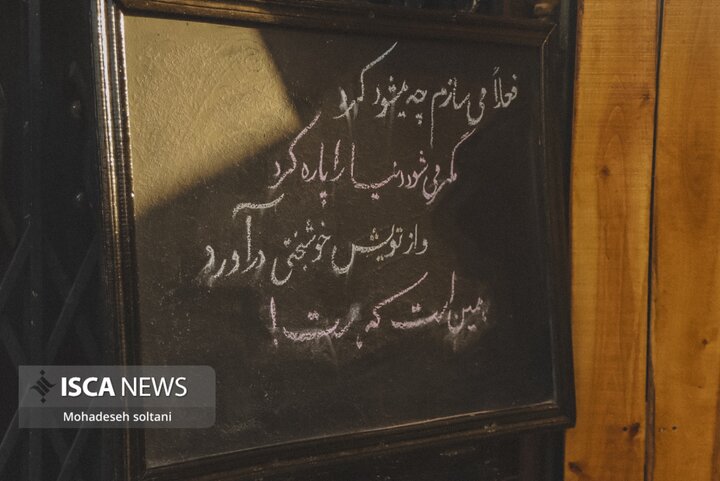 فعلاً می سازم چه میشود کرد
مگر می شود دنیا را پاره کرد
و از تویش خوشبختی درآورد
همین است که هست!
ISCA NEWS
Mohadeseh soltani